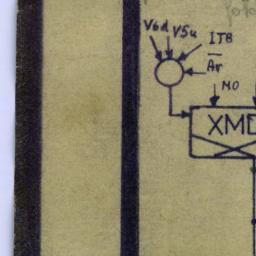 V6d V5u ITB
Ar
MO
XMD